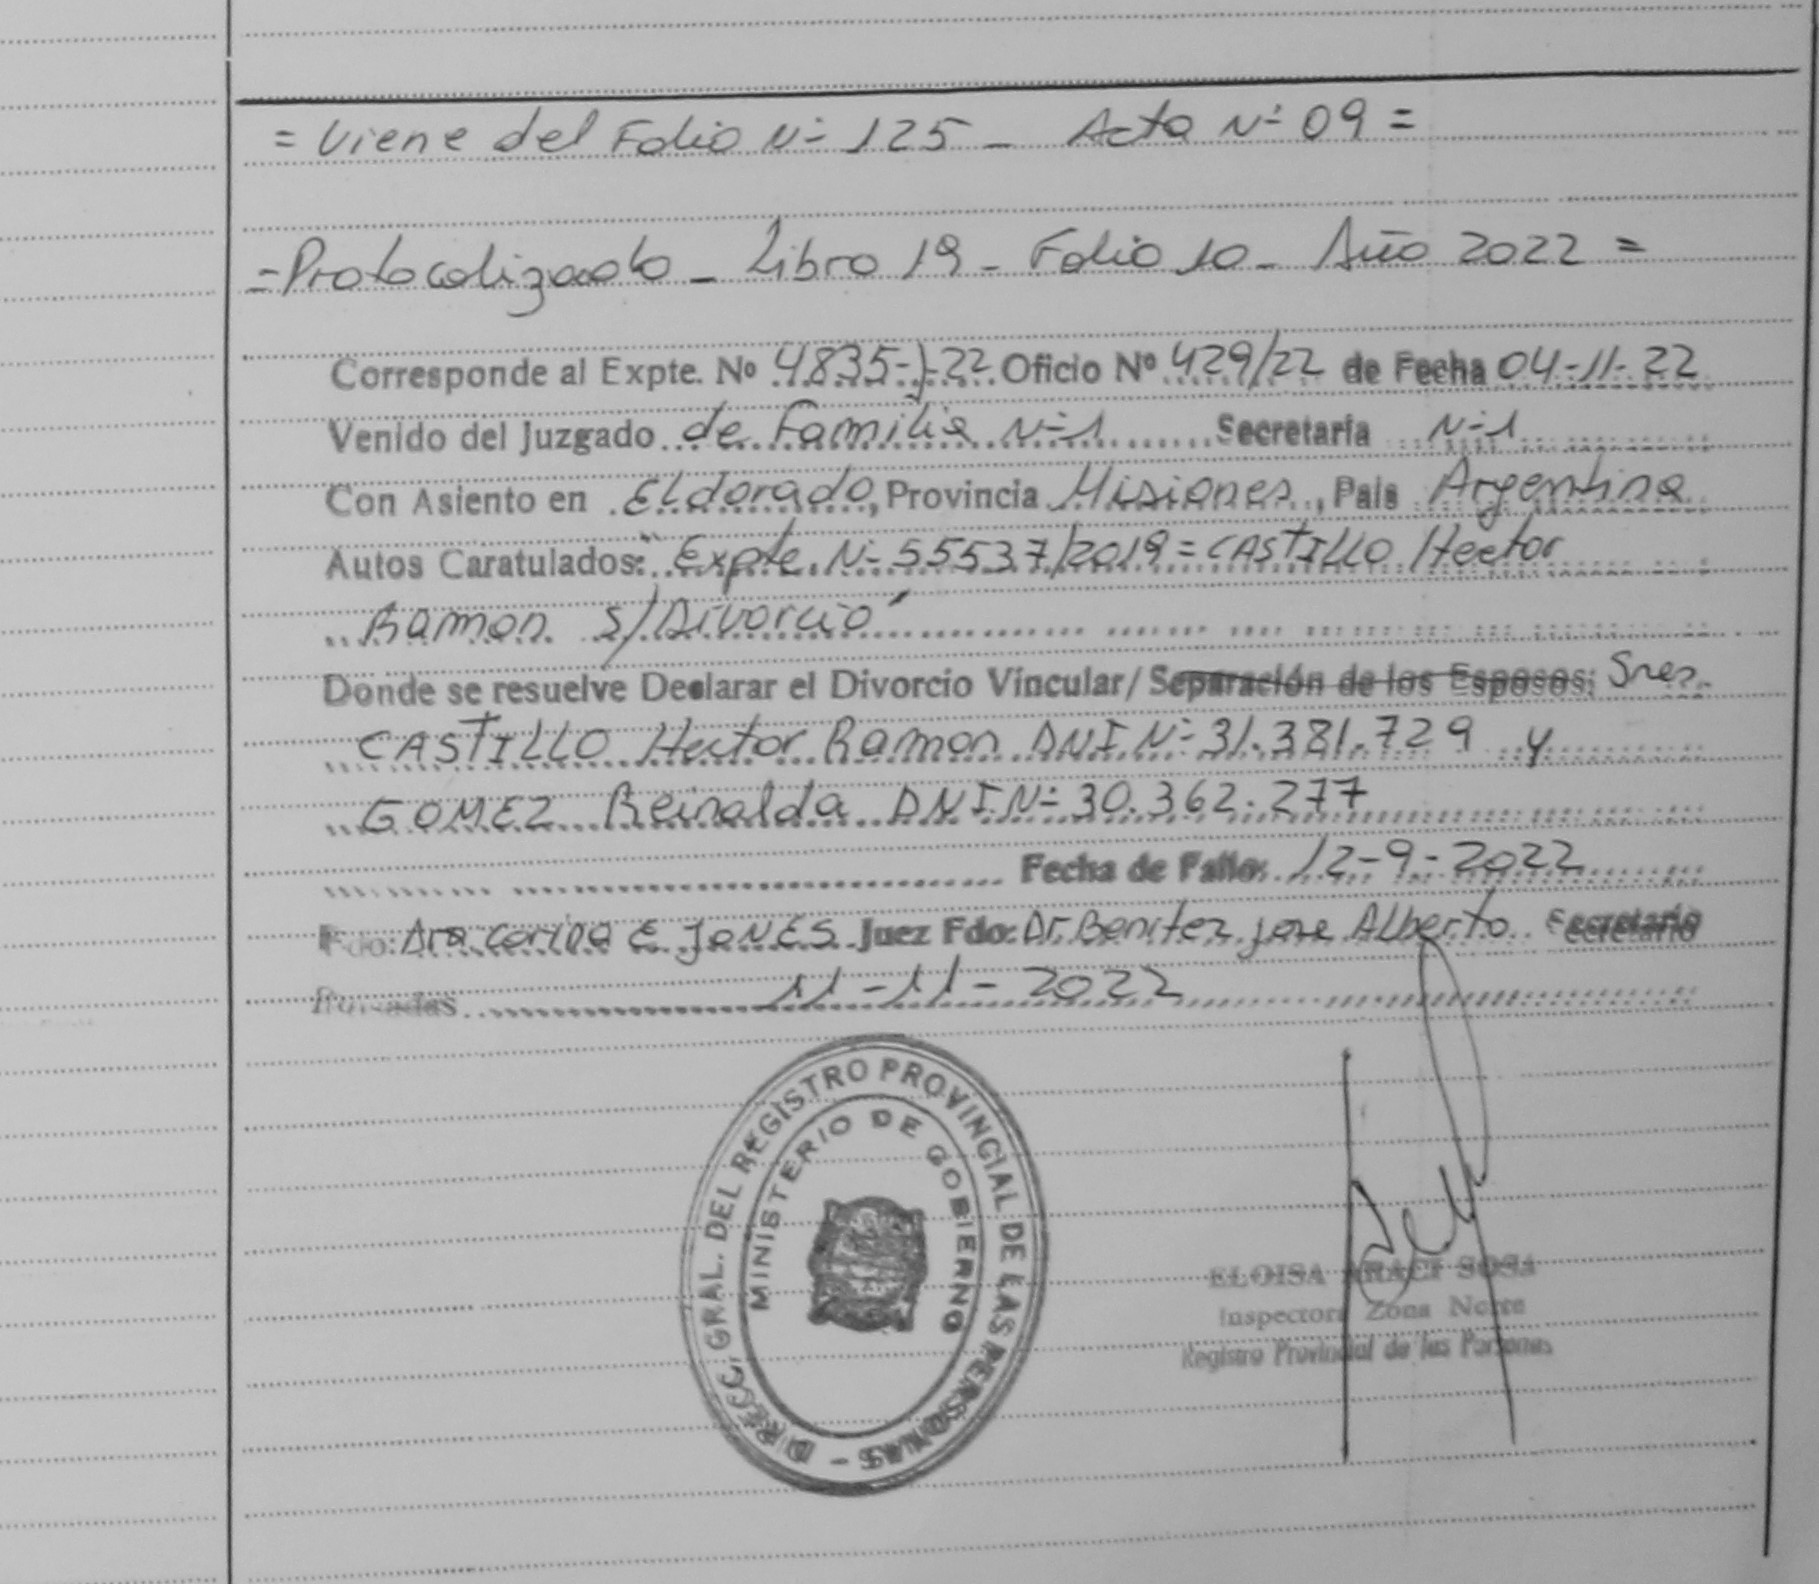 = Viene del Folio Nº 125 - Acta Nº 09 =
= Protocolizado - Libro 19 - Folio 10 - Año 2022 =
Corresponde al Expte. Nº 4835-J-22 Oficio Nº 429/22 de Fecha 04-11-22
Venido del Juzgado de Familia Nº 1 Secretaría Nº 1
Con Asiento en Eldorado, Provincia Misiones, Pais Argentina
Autos Caratulados: "Expte. Nº 55537/2019 = CASTILLO Hector
Ramon s/Divorcio"
Donde se resuelve Declarar el Divorcio Vincular/ Separación de los Esposos; Sres.
CASTILLO Hector Ramon DNI Nº 31.381.729 y
GOMEZ Reinalda DNI Nº 30.362.277
Fecha de Fallo: 12-9-2022
Fdo: Dra Carina E. JONES Juez Fdo: Dr. Benitez Jose Alberto Secretario
11-11-2022
DIRECC. GRAL. DEL REGISTRO PROVINCIAL DE LAS PERSONAS -
MINISTERIO DE GOBIERNO
ELOISA ARACI SOSA
Inspectora Zona Norte
Registro Provincial de las Personas